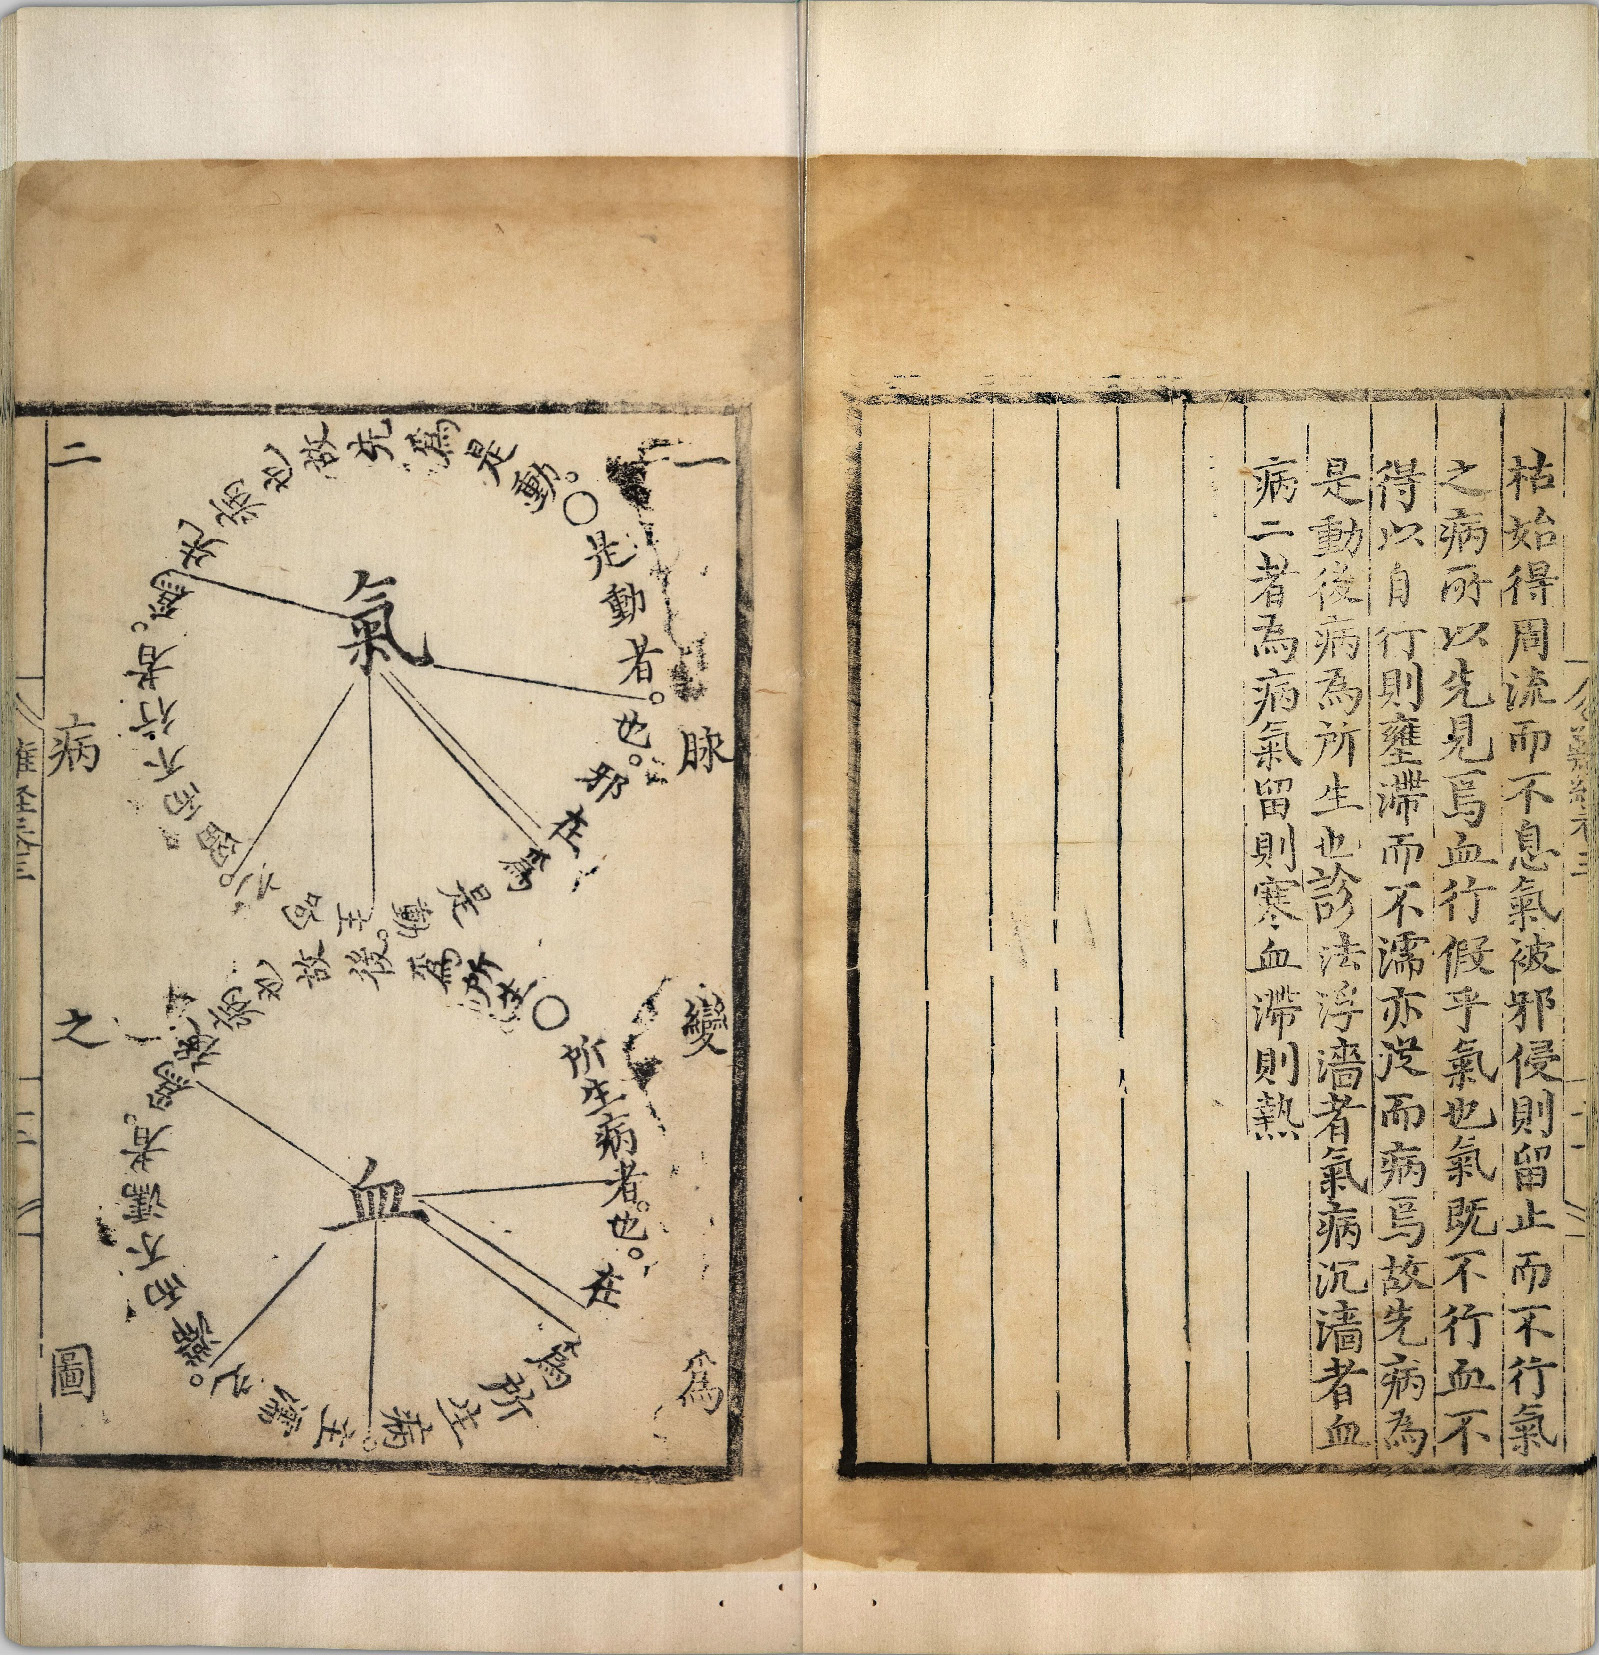 枯始得周流而不息氣被邪侵則留止而不行氣
之病所以先見焉血行假乎氣也氣既不行血不
得以自行則壅滯而不濡亦從而病焉故先病為
是動後病為所生也診法浮濇者氣病沉濇者血
病二者為病氣留則寒血滯則熱
一脉變爲
二病之圖
氣
○是動者。也。
邪在
爲是動。
主呴之。
留而不行者。
爲先病也故先爲是動。
血
○所生病者。也。
在
爲所生病。
主濡之。
滯而不濡者。
爲後病也故後爲所生